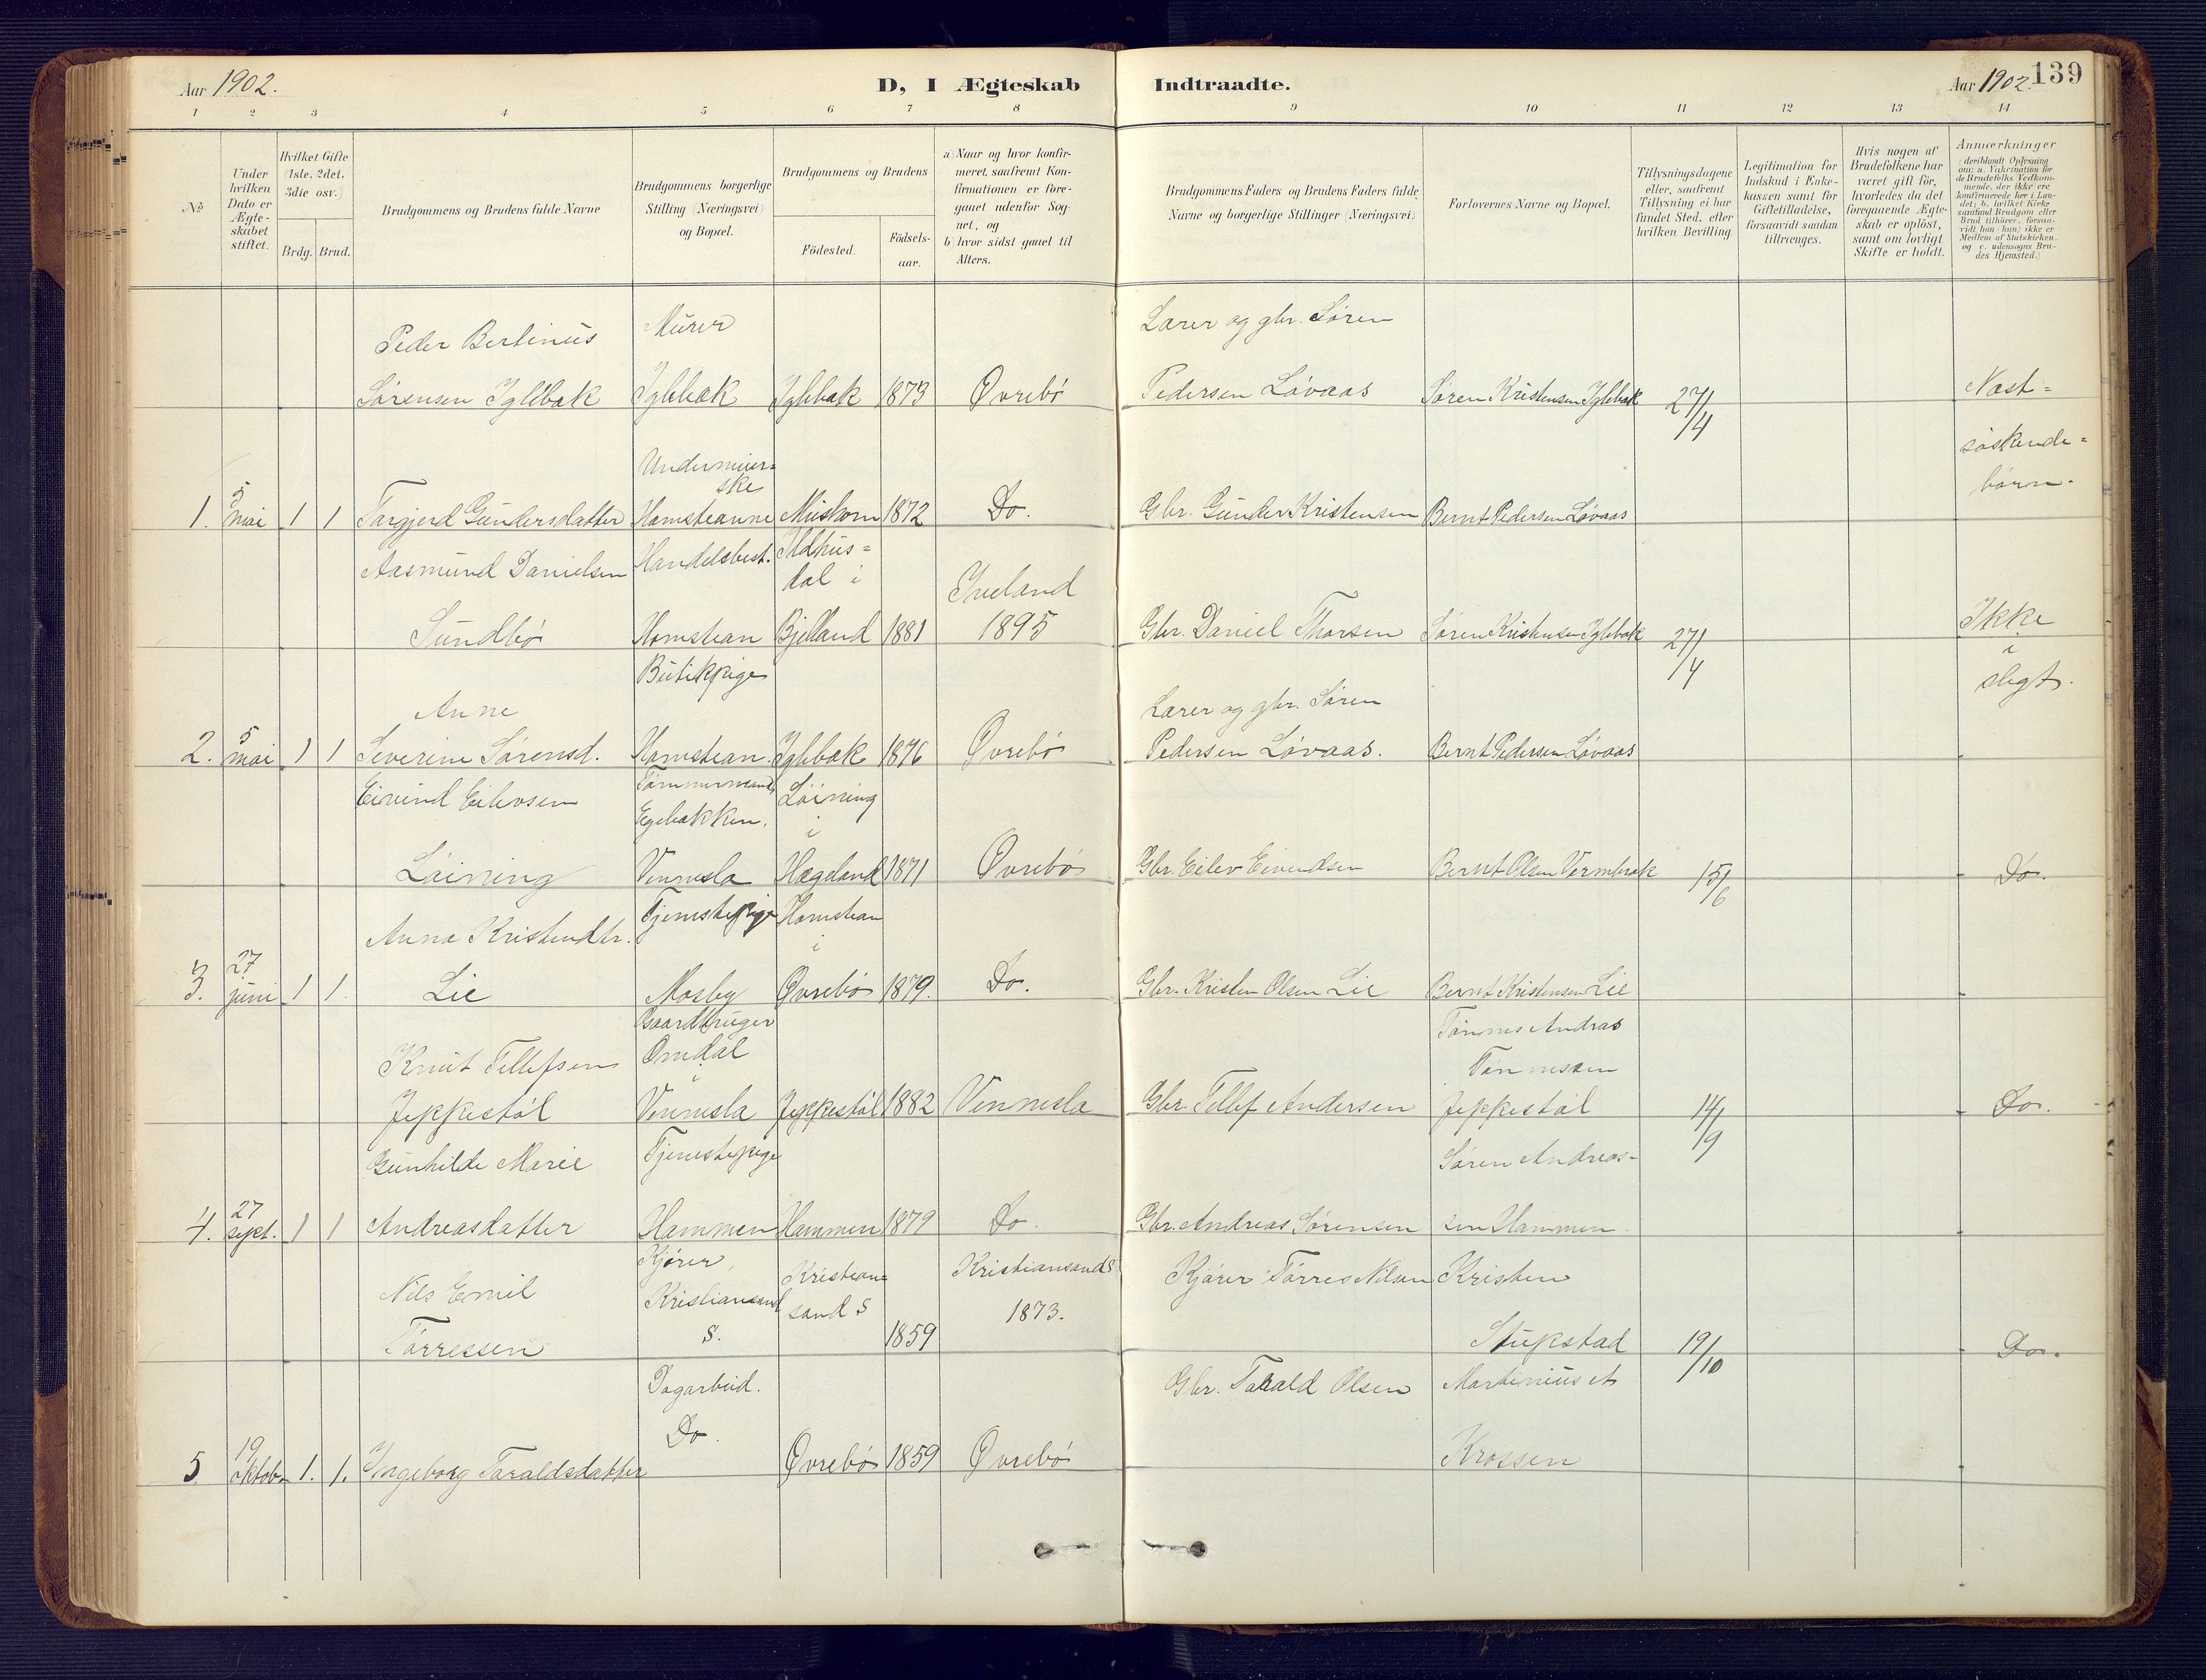 Aar 1902.
D, I Ægteskab Indtraadte.
Aar 1902. 139
1 2 3 4 5 6 7 8 9 10 11 12 13 14
No
Under hvilken Dato er Ægteskabet stiftet.
Hvilket Gifte (1ste, 2det, 3die osv.)
Brdg. Brud.
Brudgommens og Brudens fulde Navne
Brudgommens borgerlige Stilling (Næringsvei) og Bopæl.
Brudgommens og Brudens
Födested. Födsels-aar.
a) Naar og hvor konfirmeret, saafremt Konfirmationen er foregaaet udenfor Sognet, og
b) hvor sidst gaaet til Alters.
Brudgommens Faders og Brudens Faders fulde Navne og borgerlige Stillinger (Næringsvei)
Forlovernes Navne og Bopæl.
Tillysningsdagene eller, saafremt Tillysning ei har fundet Sted, efter hvilken Bevilling.
Legitimation for Indskud i Enkekassen samt for Giftetilladelse, forsaavidt saadan tiltrænges.
Hvis nogen af Brudefolkene har været gift för, hvorledes da det foregaaende Ægteskab er oplöst, samt om lovligt Skifte er holdt.
Anmærkninger
(deriblandt Oplysning om: a. Vakcination for de Brudefolks Vedkommende, der ikke ere konfirmerede her i Landet; b. hvilket Kirkesamfund Brudgom eller Brud tilhører, forsaavidt han (hun) ikke er Medlem af Statskirken, og c. udensogns Brudes Hjemsted.)
Peder Bertinus Murer Lærer og gbr. Søren
Sørensen Iglebæk Iglebæk Iglebæk 1873 Øvrebø Pedersen Løvaas Søren Kristensen Iglebæk 27/4 Næst=
Undermeier=
ske søskende=
børn.
1. 5 mai 1 1 Targjerd Gundersdatter Homsteanne Muskom 1872 Do. Gbr. Gunder Kristensen Bernt Pedersen Løvaas
Aasmund Danielsen Handelsbest. Ildhus=
dal i Iveland
Sundbø Homstean Bjelland 1881 1895 Gbr. Daniel Thorsen Søren Kristensen Iglebæk 27/4 Ikke
i
slegt.
Butikpige
Anne Lærer og gbr. Søren
2. 5 mai 1 1 Severine Sørensd. Homstean. Iglebæk 1876 Øvrebø Pedersen Løvaas. Bernt Pedersen Løvaas
Eivind Eilevsen Tømmermand, Løining
Egebakken, i
Løining Vennesla Hægeland 1871 Øvrebø Gbr. Eilev Eivendsen Bernt Olsen Vermbæk 15/6 Do.
Anna Kristendtr. Tjenestepige Homstean
i
3. 27 juni 1 1. Lie Mosby Øvrebø 1879. Do. Gbr. Kristen Olsen Lie Bernt Kristensen Lie
Gaardbruger Tønnes Andras
Knut Tellefsen Omdal Tønnessen
i
Jeppestøl Vennesla Jeppestøl 1882 Vennesla Gbr. Tellef Andersen Jeppestøl 14/9 Do.
Gunhilde Marie Tjenestepige Søren Andreas-
4. 27 sept. 1 1 Andreasdatter Hammen Hammen 1879 Do. Gbr. Andreas Sørensen sen Hammen.
Kjører, Kristian= Kristiansand S Kjører Tørres Nilsen Kristen
Nils Emil Kristiansand sand S 1873.
Tørressen S. 1859 Stupstad 19/10 Do.
Dagarbeid. Gbr. Tarald Olsen Martinius A
Do.
5 19 oktob. 1. 1. Ingeborg Taraldsdatter Øvrebø 1859 Øvrebø Krossen